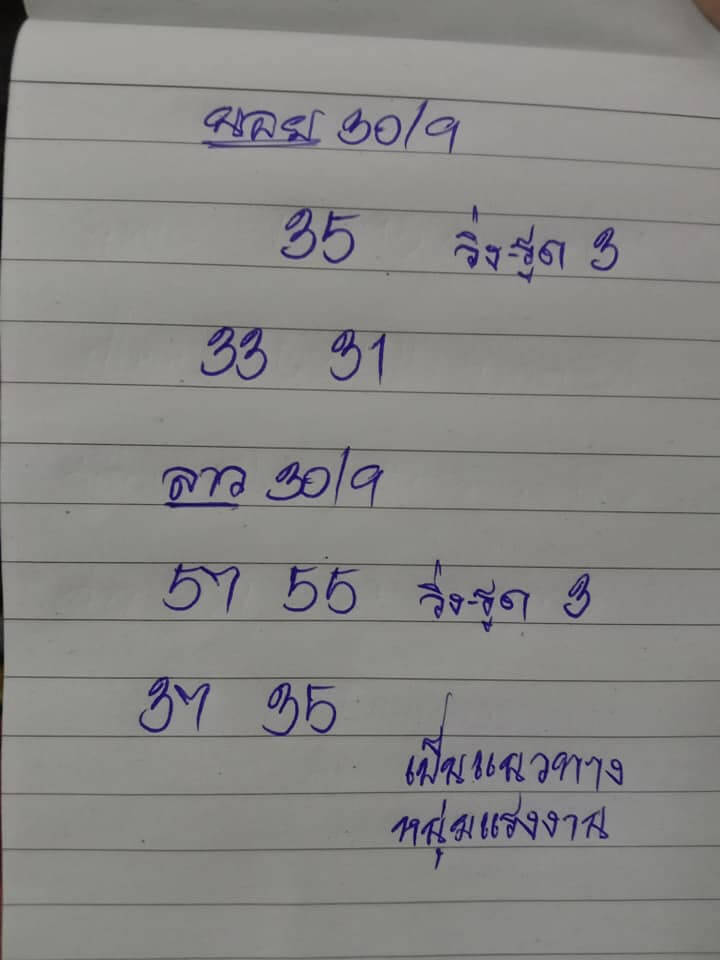 นอย 30/9
35 วิ่ง-รูด 3
33 31
ลาว 30/9
57 55 วิ่ง-รูด 3
37 35
เป็นแนวทาง
หนุ่มแรงงาน